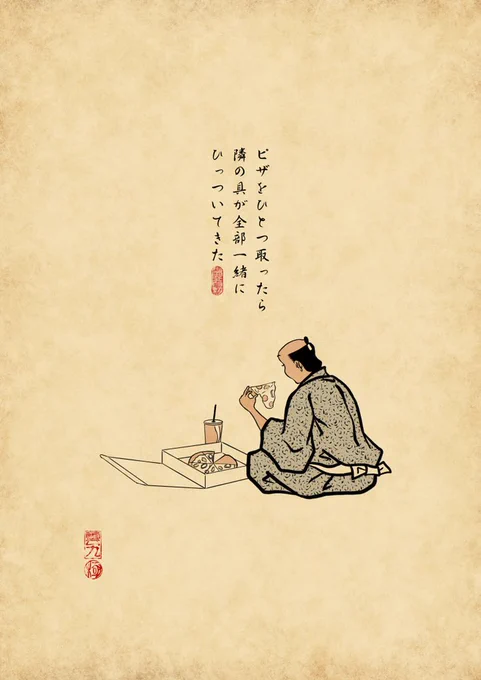 ピザをひとつ取ったら
隣の具が全部一緒に
ひっついてきた